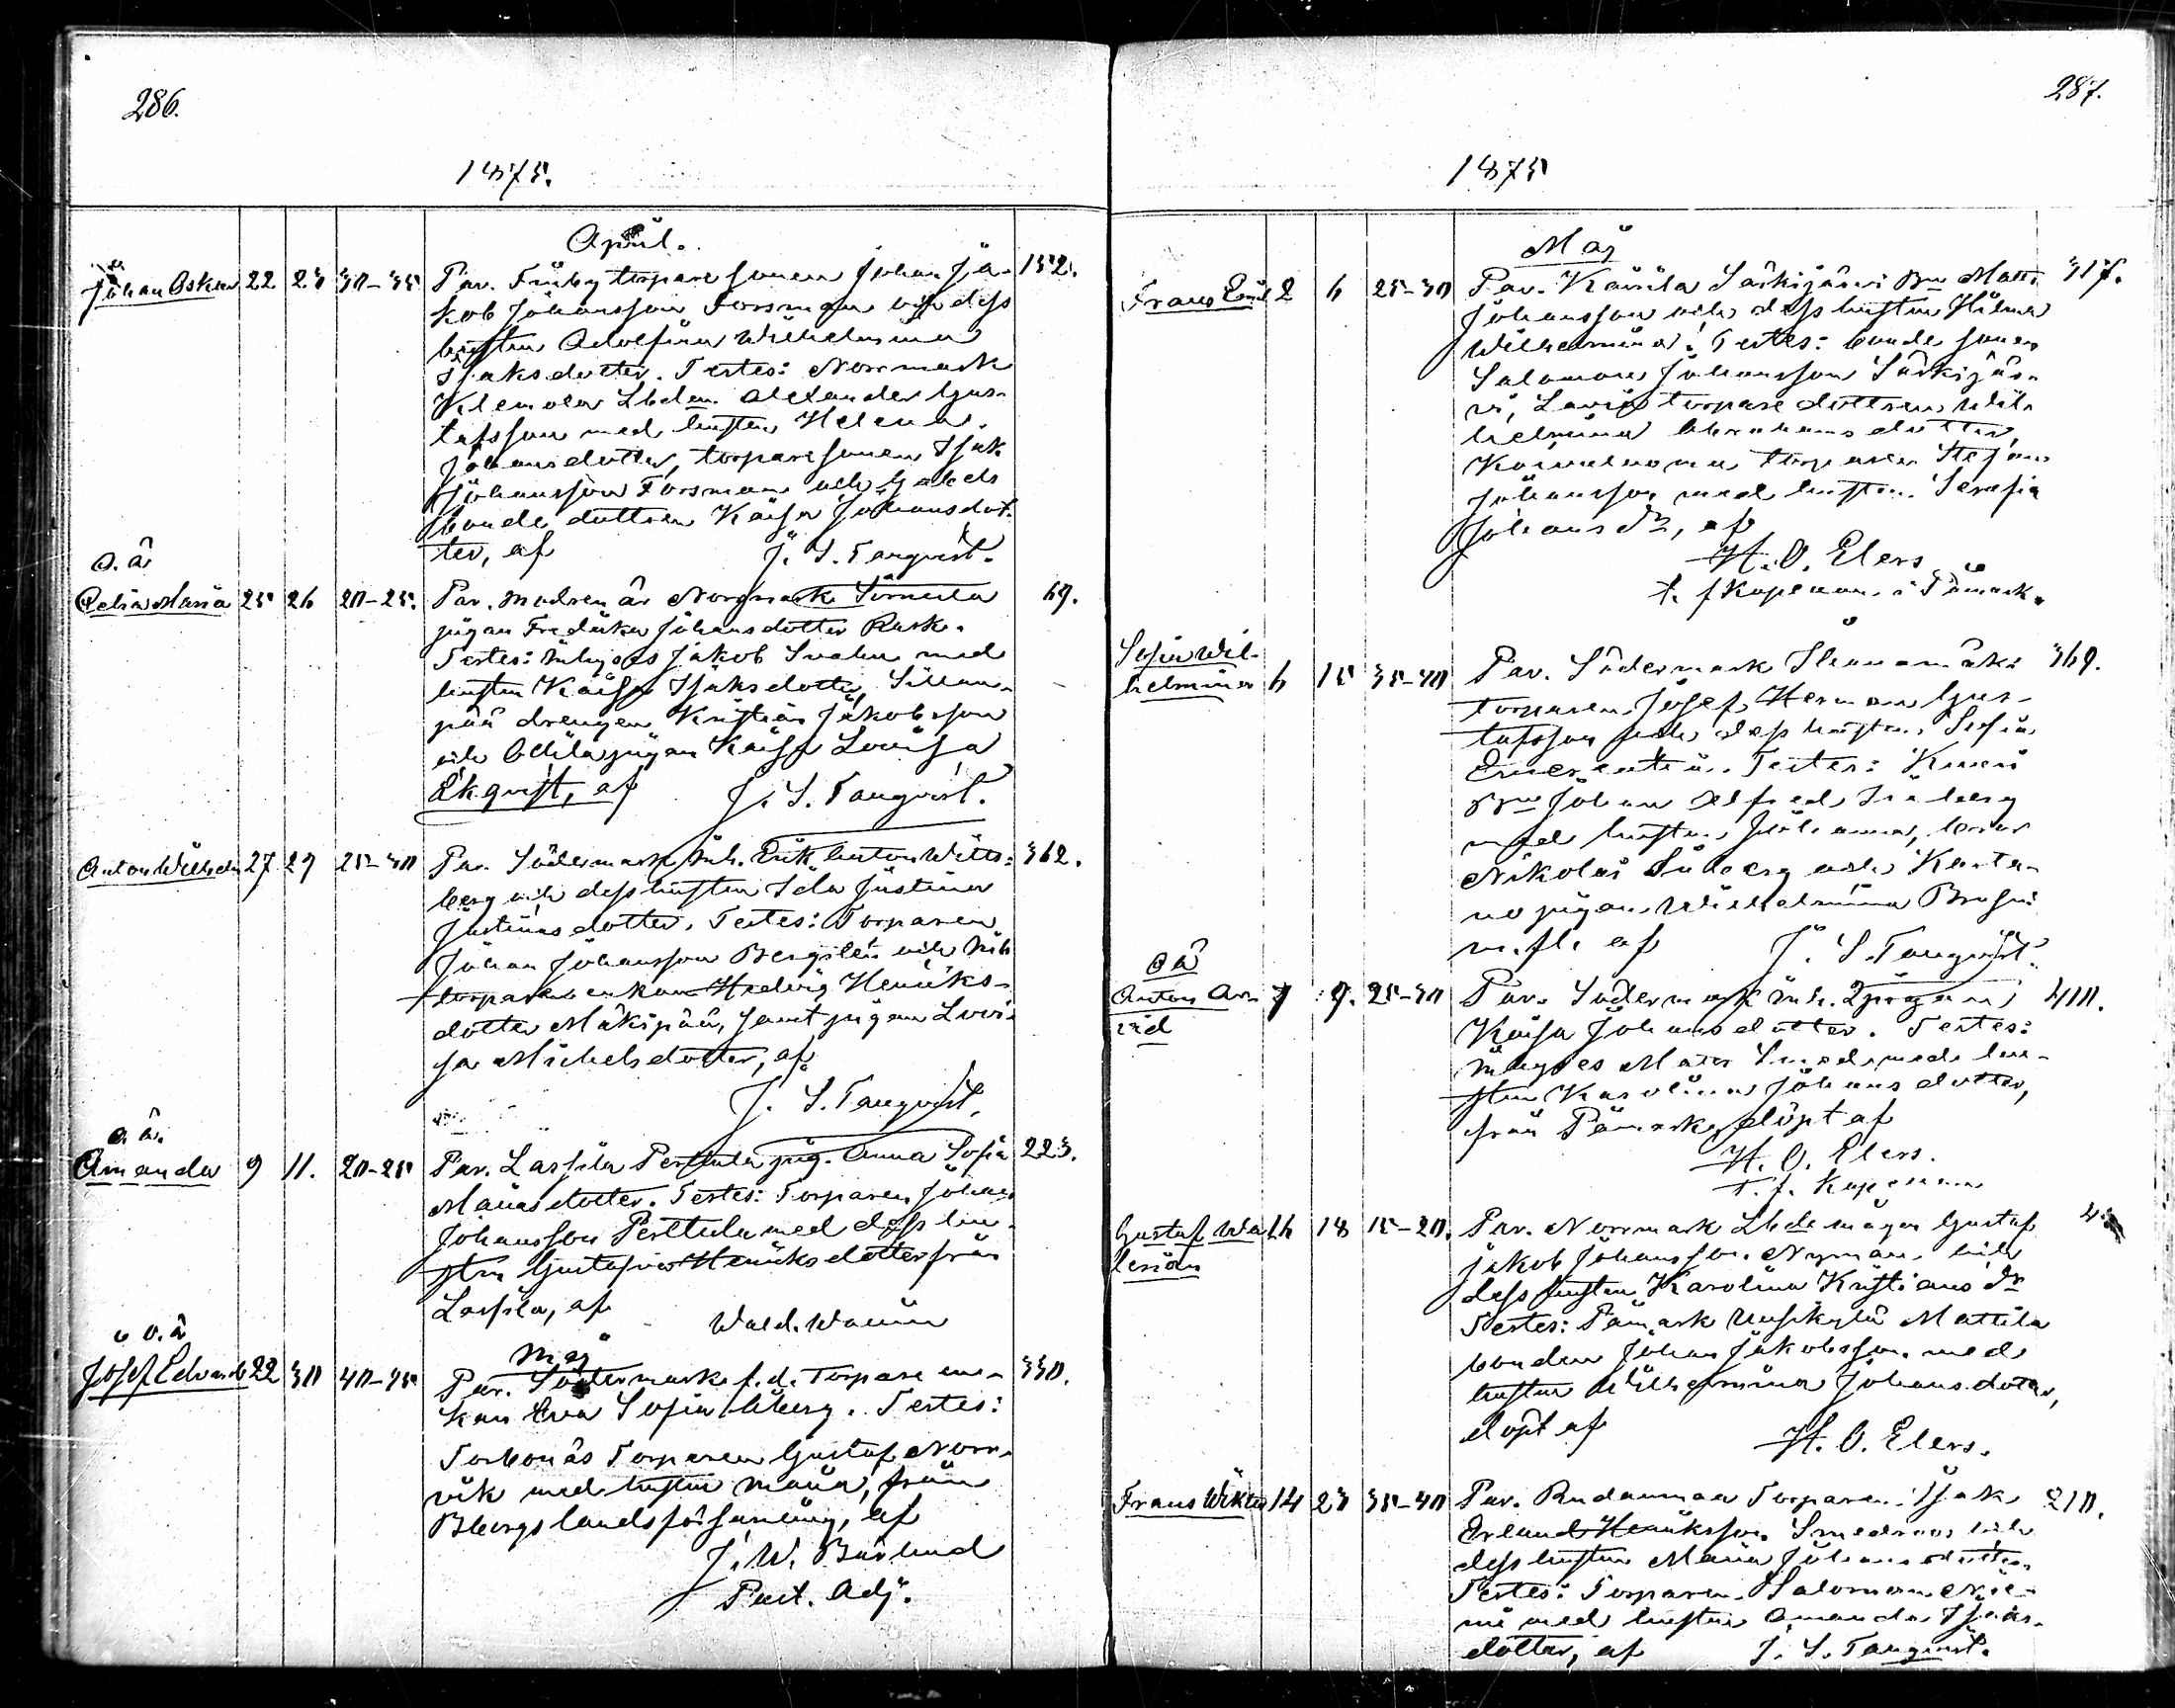 286.
1875.
April.
Johan Oskar 22 23 30-35 Par. Träsby torpare sonen Johan Ja- 152.
kob Johansson Forsman och dess
hustru Adolfina Wilhelmina
Isaks dotter. Testes: Norrmark
Klemola Lbden. Alexander Gus-
tafsson med hustru Helena
Johansdotter, torpare sonen Isak
Johansson Forsman och
bonde dottren Kaisa Johansdot-
ter, af J. S. Tanqvist.
o. ä.
Delia Maria 25 26 20-25. Par. Modren är Norrmark 69.
pigan Fredrika Johansdotter Rask.
Testes: Inhyses Jakob Svahn med
hustru Kaisa Isaksdotter, Sillan-
pää drengen Kristian Jakobsson
och Attila pigan Kaisa Lovisa
Ekqvist, af J. S. Tanqvist.
Anton Wilhelm 27 29 25-30 Par. Södermark Inh. Erik Anton Witts- 362.
berg och dess hustru Ida Justina
Justinas dotter. Testes: Torparen
Johan Johansson Bergsten och Inh.
torpare enkan Hedvig Henriks-
dotter Mäkipää, samt pigan Lovi-
sa Michelsdotter, af
J. S. Tanqvist.
o. ä.
Amanda 9 11. 20-25 Par. Lassila Perttula pig. Anna Sofia 223.
Mariasdotter. Testes: Torparen Johan
Johansson Perttula med dess hu-
stru Gustafva Henriksdotter från
Lassila, af Wald. Wallin
Maj
o. ä
Josef Edvard 22 30 40-45 Par. Södermark f.d. Torpare en- 330.
kan Eva Sofia Åberg. Testes:
Torbonäs Torparen Gustaf Norr-
vik med hustru Maria, från
Bborgs landsförsamling, af
J. W. Bärlund
Past. Adj.
287.
1875
Maj
Frans Emil 2 6 25-30 Par. Kairila Särkijärvi Bn Matts 317.
Johansson och dess hustru Hilma
Wilhelmina. Testes: bonde sonen
Salomon Johansson Särkijär-
vi, Lavia torpare dottren Wil-
helmina Abrahamsdotter,
torparen Stefan
Johansson med hustru Serafia
Johans dr, af
H. O. Elers
t. f Kapellan i Påmark.
Sofia Wil-
helmina 6 15 35-40 Par. Södermark 369.
torparen Josef Herman Gus-
tafsson och dess hustru Sofia
Emerentia. Testes:
Johan Alfred Sjöberg
med hustru Johanna,
Nikolai Sjöberg och
pigan Wilhelmina
m.fl. af J. S. Tanqvist.
o ä
Anton Ar-
vid 7 9. 25-30 Par. Södermark Inh. pigan 400.
Kaisa Johansdotter. Testes:
Inhyses Matts Smed med hu-
stru Karolina Johansdotter,
från Påmark, döpt af
H. O. Elers.
t. f. Kapellan
Gustaf Wa
lerian 16 18 15-20. Par. Norrmark Lbde mågen Gustaf
Jakob Johansson Nyman och
dess hustru Karolina Kristians dr
Testes: Påmark Uusikylä Mattila
bonden Johan Jakobsson med
hustru Wilhelmina Johansdotter,
döpt af H. O. Elers.
Frans Wiktor 14 23 35-40 Par. Rudanmaa Torparen Isak 210.
Erland Henriksson Smedroos och
dess hustru Maria Johansdotter.
Testes: Torparen Salomon Nie-
mi med hustru Amanda Isaks-
dotter, af J. S. Tanqvist.